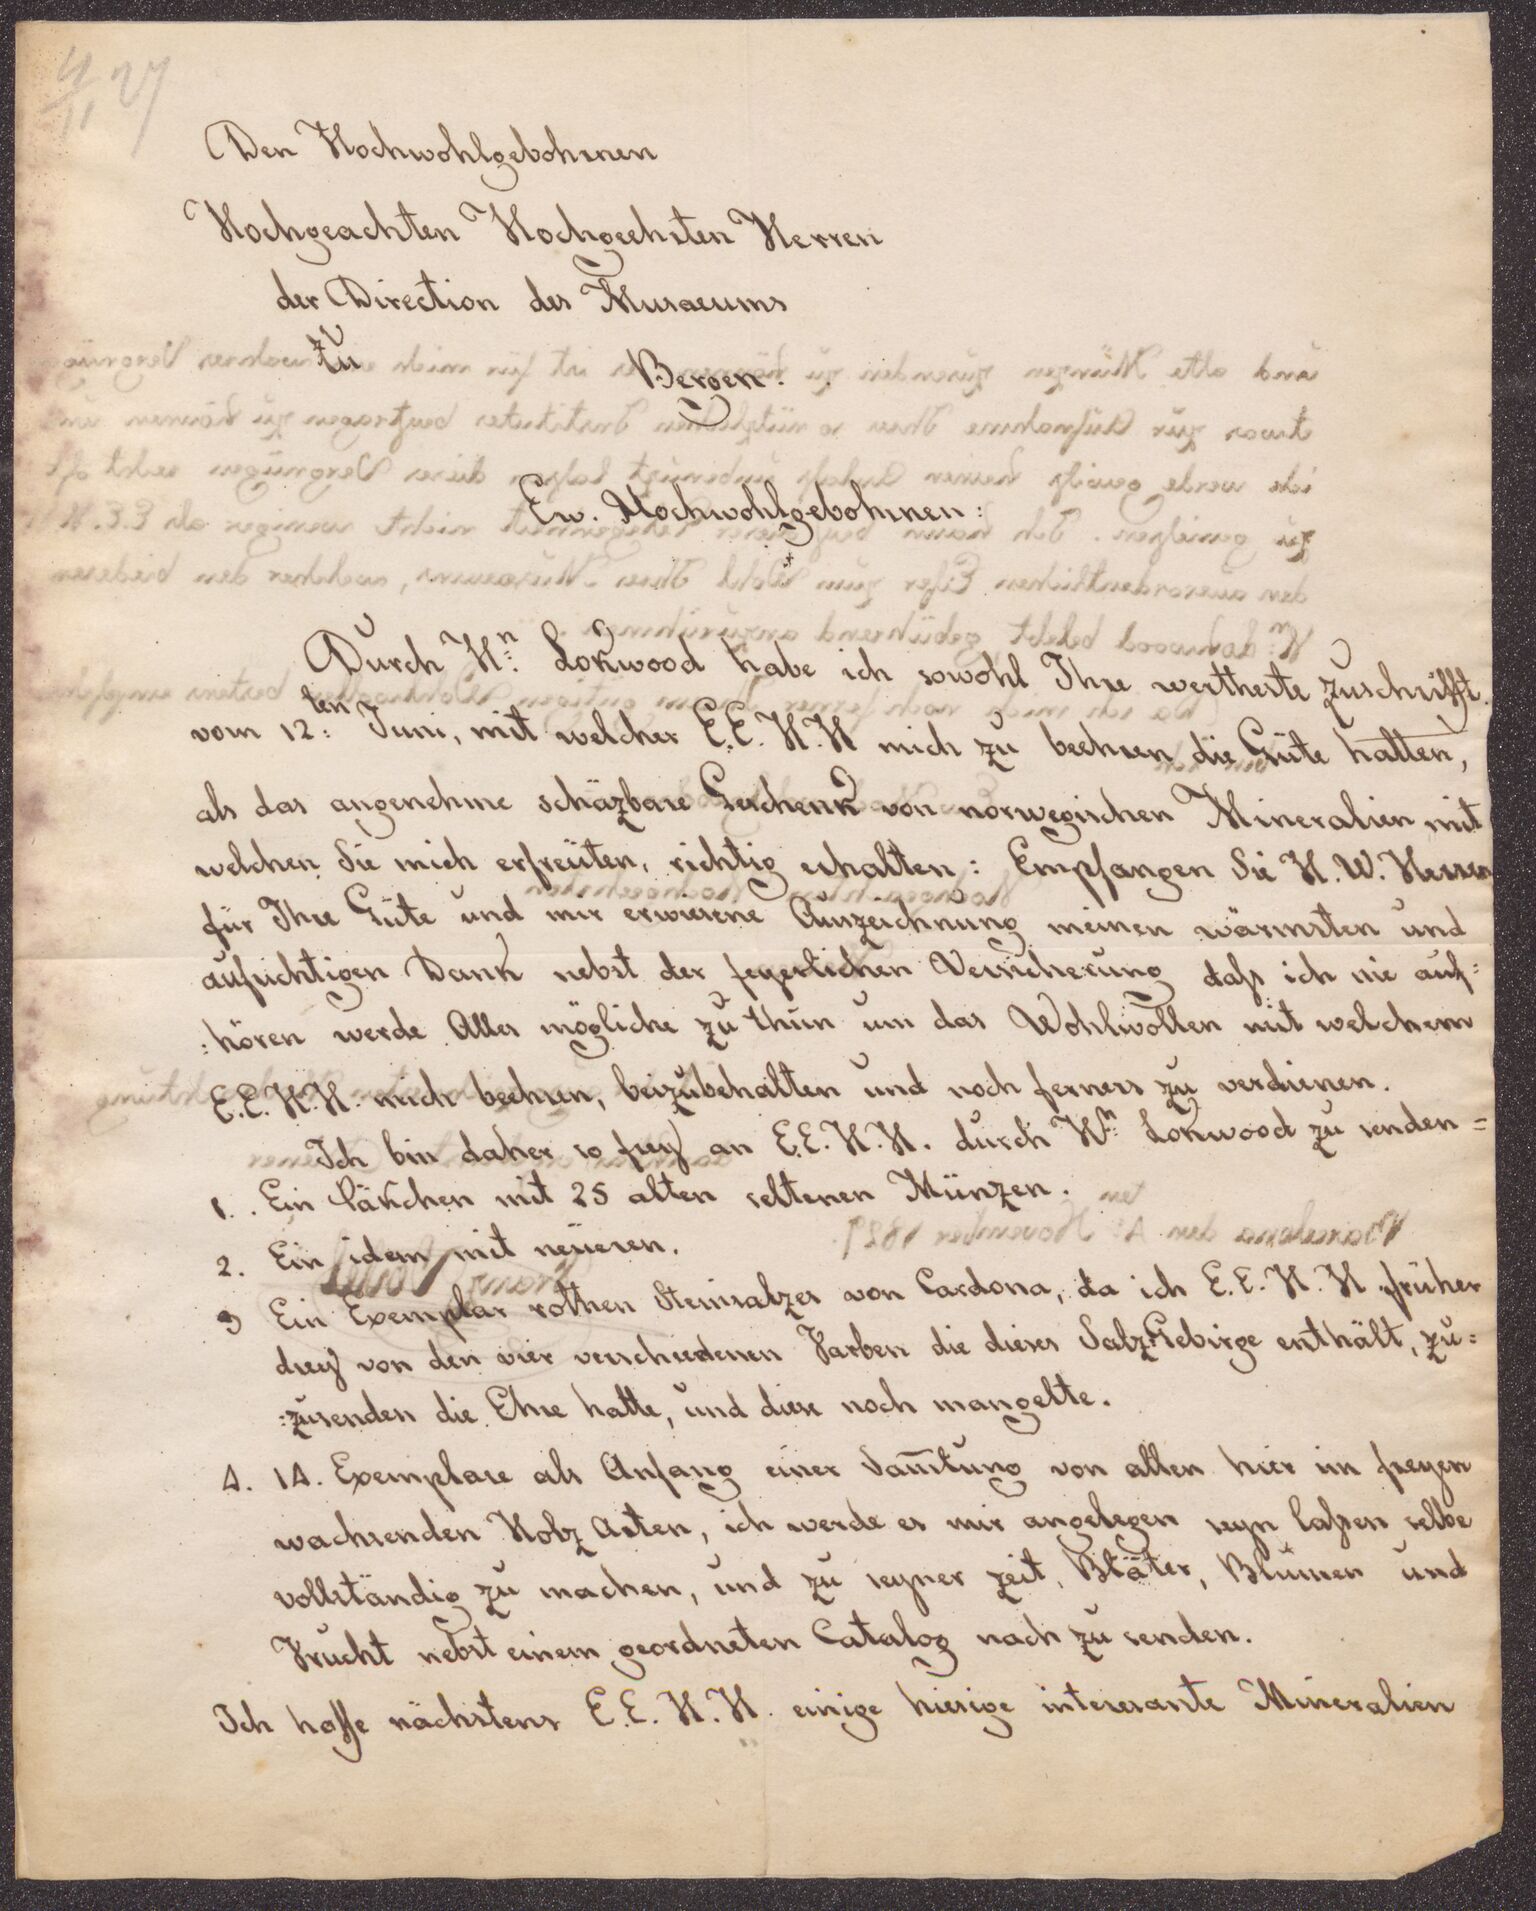 4/11 27
Den Hochwohlgebohrnen
Hochgeachten Hochgeehrten Herren
der Direction des Musaeums
zu
Bergen.
Ew. Hochwohlgebohrnen:
Durch Hn: Lokwood habe ich sowohl Ihre wertheste Zuschrifft
vom 12ten: Juni, mit welcher E.E. H.H mich zu beehren die Güte hatten,
als das angenehme schäzbare Geschenk von norwegischen Mineralien mit
welchen Sie mich erfreüten, richtig erhalten: Empfangen Sie H. W. Herren
für Ihre Güte und mir erwiesene Auszeichnung meinen wärmsten und
aufrichtigen Dank nebst der feyerlichen Versicherung dass ich nie auf=
:hören werde Alles mögliche zu thun um das Wohlwollen mit welchem
E.E.H.H. mich beehren, beizubehalten und noch ferners zu verdienen.
Ich bin daher so frey an E.E.H.H. durch Hn: Lokwood zu senden =
1. Ein Päkchen mit 25 alten seltenen Münzen.
2. Ein idem mit neüeren.
3 Ein Exemplar rothen Steinsalzes von Cardona, da ich E.E.H.H früher
drey von den vier verschiedenen Farben die dieses SalzGebirge enthält, zu=
:zusenden die Ehre hatte, und diese noch mangelte.
4. 14. Exemplare als Anfang einer Sam̅lung von allen hier im freyen
wachsenden Holz Arten, ich werde es mir angelegen seyn lassen selbe
vollständig zu machen, und zu seyner zeit, Bläter, Blumen und
Frucht nebst einem geordneten Catalog nach zu senden.
Ich hoffe nächstens E.E. H.H. einige hiesige interesante Mineralien